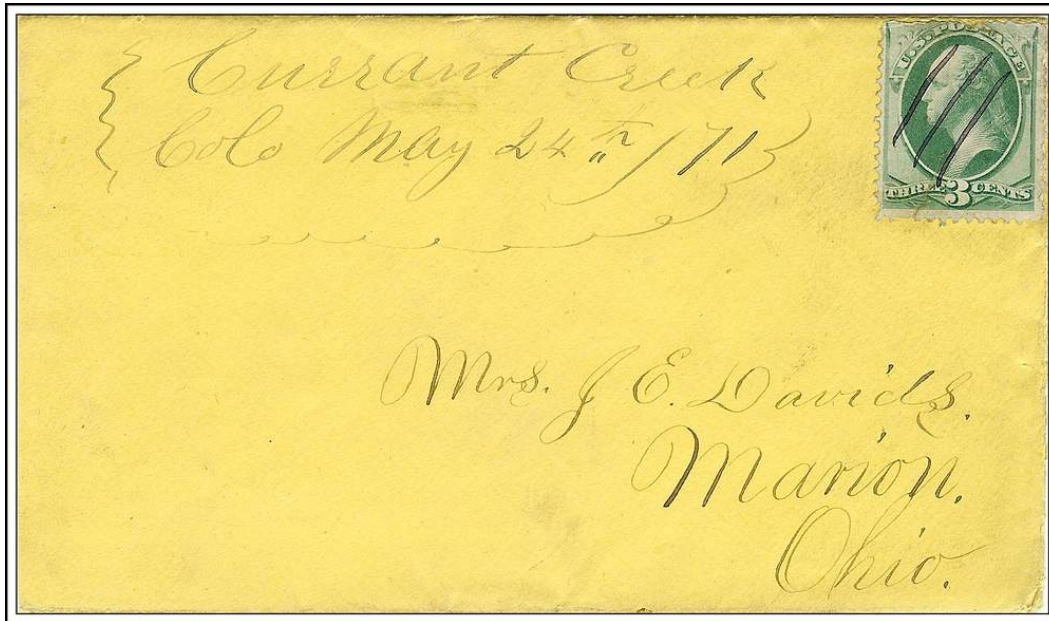 Currant Creek
Colo May 24th /71
U.S. POSTAGE
THREE 3 CENTS
Mrs. J E. Davids.
Marion.
Ohio.